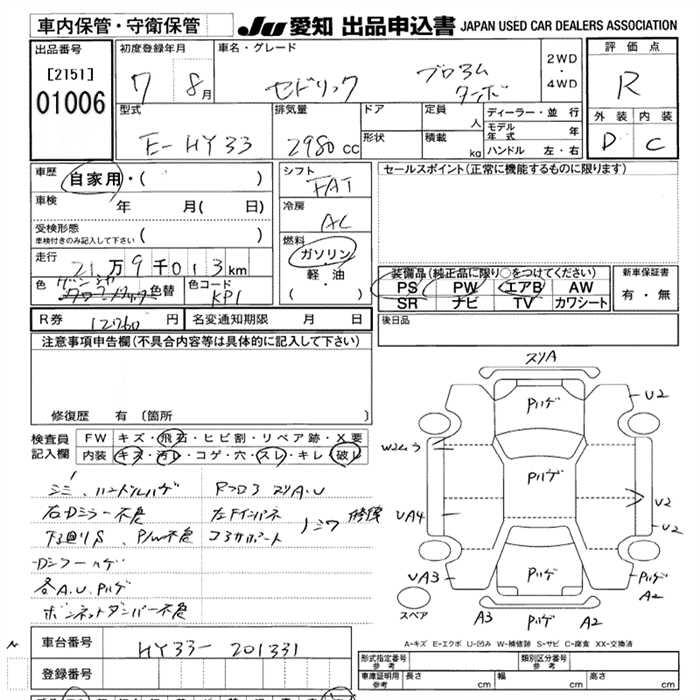 車内保管・守衛保管 JU 愛知 出品申込書 JAPAN USED CAR DEALERS ASSOCIATION
出品番号 初度登録年月 車名・グレード 評価点
[2151] 7 8月 セドリック ブロアム ターボ 2WD・4WD R
01006
型式 排気量 ドア 定員 人 ディーラー・並行 外装 内装
E-HY33 2980cc 形状 積載 kg モデル年式 年 D C
ハンドル 左・右
車歴 自家用・( ) シフト FAT セールスポイント(正常に機能するものに限ります)
車検 年 月( 日) 冷房 AC
受検形態 車検付きのみ記入して下さい ( ) 燃料 ガソリン・軽油 ( )
走行 21万9千013km
装備品(純正品に限り○をつけてください) 新車保証書
色 色替 色コード KP1 PS PW エアB AW 有・無
SR ナビ TV カワシート
R券 12760円 名変通知期限 月 日 後日品
注意事項申告欄(不具合内容等は具体的に記入して下さい)
修復歴 有〔箇所 〕
検査員記入欄 FW キズ・飛石・ヒビ割・リペア跡・X要
内装 キズ・汚レ・コゲ・穴・スレ・キレ・破レ
シミ、ハンドルハゲ
右Dミラー不良
下廻りS、P/W不良
各A.U.Pハゲ
ボンネットダンパー不良
修復
スリA
Pハゲ
U2
Pハゲ
UA4
U2
U2
UA3
Pハゲ
Pハゲ A2
スペア
A3 Pハゲ A2
A-キズ E-エクボ U-凹み W-補修跡 S-サビ C-腐食 XX-交換済
車台番号 HY33-201331
登録番号
形式指定番号 参考 類別区分番号 参考
車庫証明用 参考 長さ cm 幅 cm 高さ cm